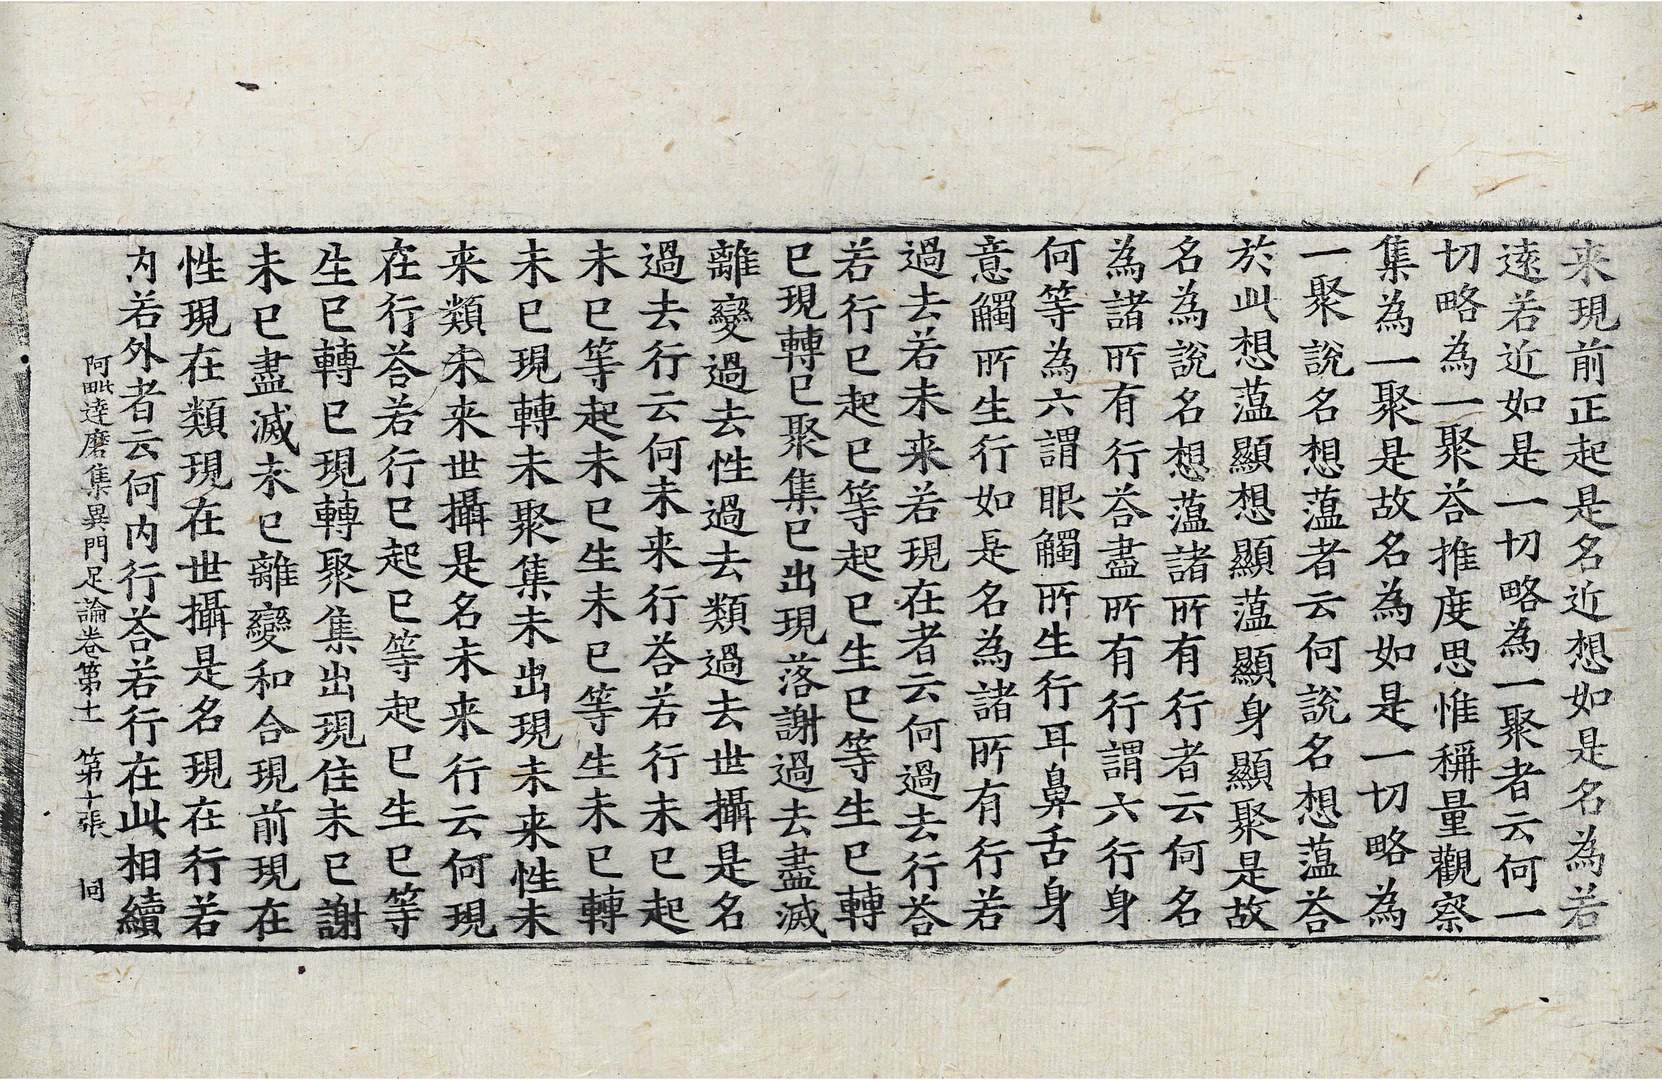 来現前正起是名近想如是名為若
遠若近如是一切略為一聚者云何一
切略為一聚荅推度思惟稱量觀察
集為一聚是故名為如是一切略為
一聚說名想薀者云何說名想薀荅
於此想薀顯想顯薀顯身顯聚是故
名為說名想薀諸所有行者云何名
為諸所有行荅盡所有行謂六行身
何等為六謂眼觸所生行耳鼻舌身
意觸所生行如是名為諸所有行若
過去若未来若現在者云何過去行荅
若行已起已等起已生已等生已轉
已現轉已聚集已出現落謝過去盡滅
離變過去性過去類過去世攝是名
過去行云何未来行荅若行未已起
未已等起未已生未已等生未已轉
未已現轉未聚集未出現未来性未
来類未来世攝是名未来行云何現
在行荅若行已起已等起已生已等
生已轉已現轉聚集出現住未已謝
未已盡滅未已離變和合現前現在
性現在類現在世攝是名現在行若
内若外者云何内行荅若行在此相續
阿毗達磨集異門足論卷第十一 第十張 同